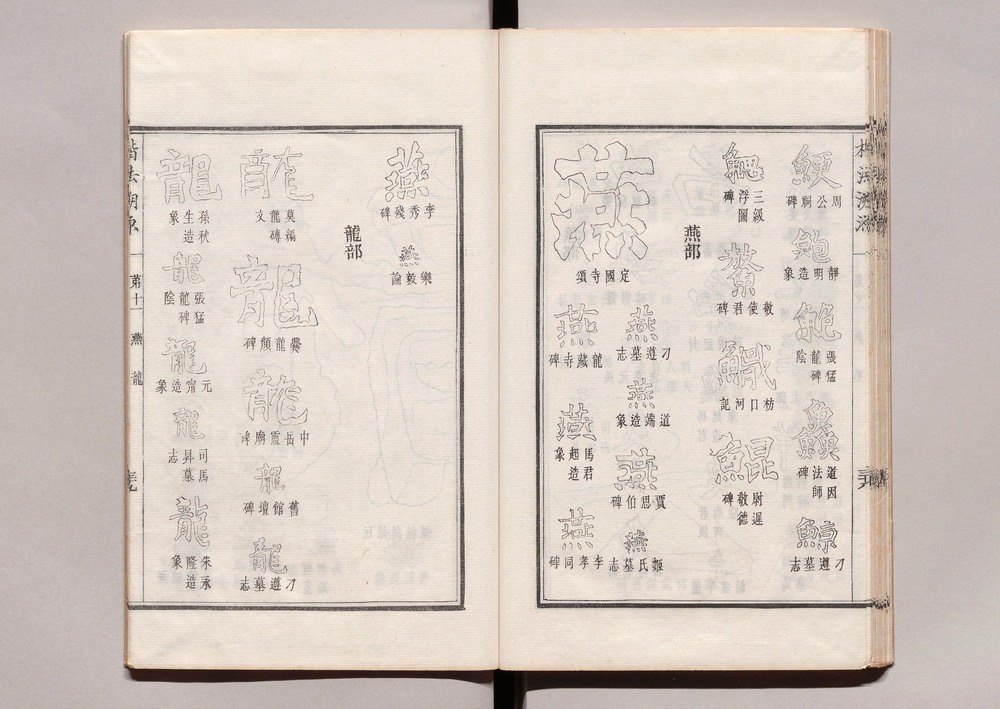 鯁
周公祠碑
鮑
靜明造象
鮑
張猛龍碑陰
鱻
道因法師碑
鯨
刁遵墓志
三級浮圖碑
敬使君碑
枋口河記
鯤
尉遲敬德碑
燕部
燕
定國寺頌
燕
刁遵墓志
燕
道端造象
燕
賈思伯碑
燕
姬氏墓志
燕
龍藏寺碑
燕
馬君起造象
燕
李孝同碑
楷法溯源
燕
李秀殘碑
燕
樂毅論
龍部
龍
莫編龍磚文
龍
爨龍顏碑
龍
中岳靈廟碑
龍
舊館壇碑
龍
刁遵墓志
龍
孫秋生造象
龍
張猛龍碑陰
龍
元甯造象
龍
司馬昇墓志
龍
朱永隆造象
楷法溯源 第十一 燕 龍